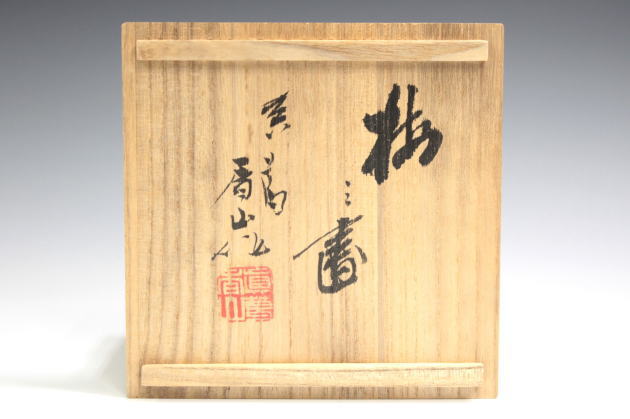 梅之畫
真葛
香山作
眞葛
香山